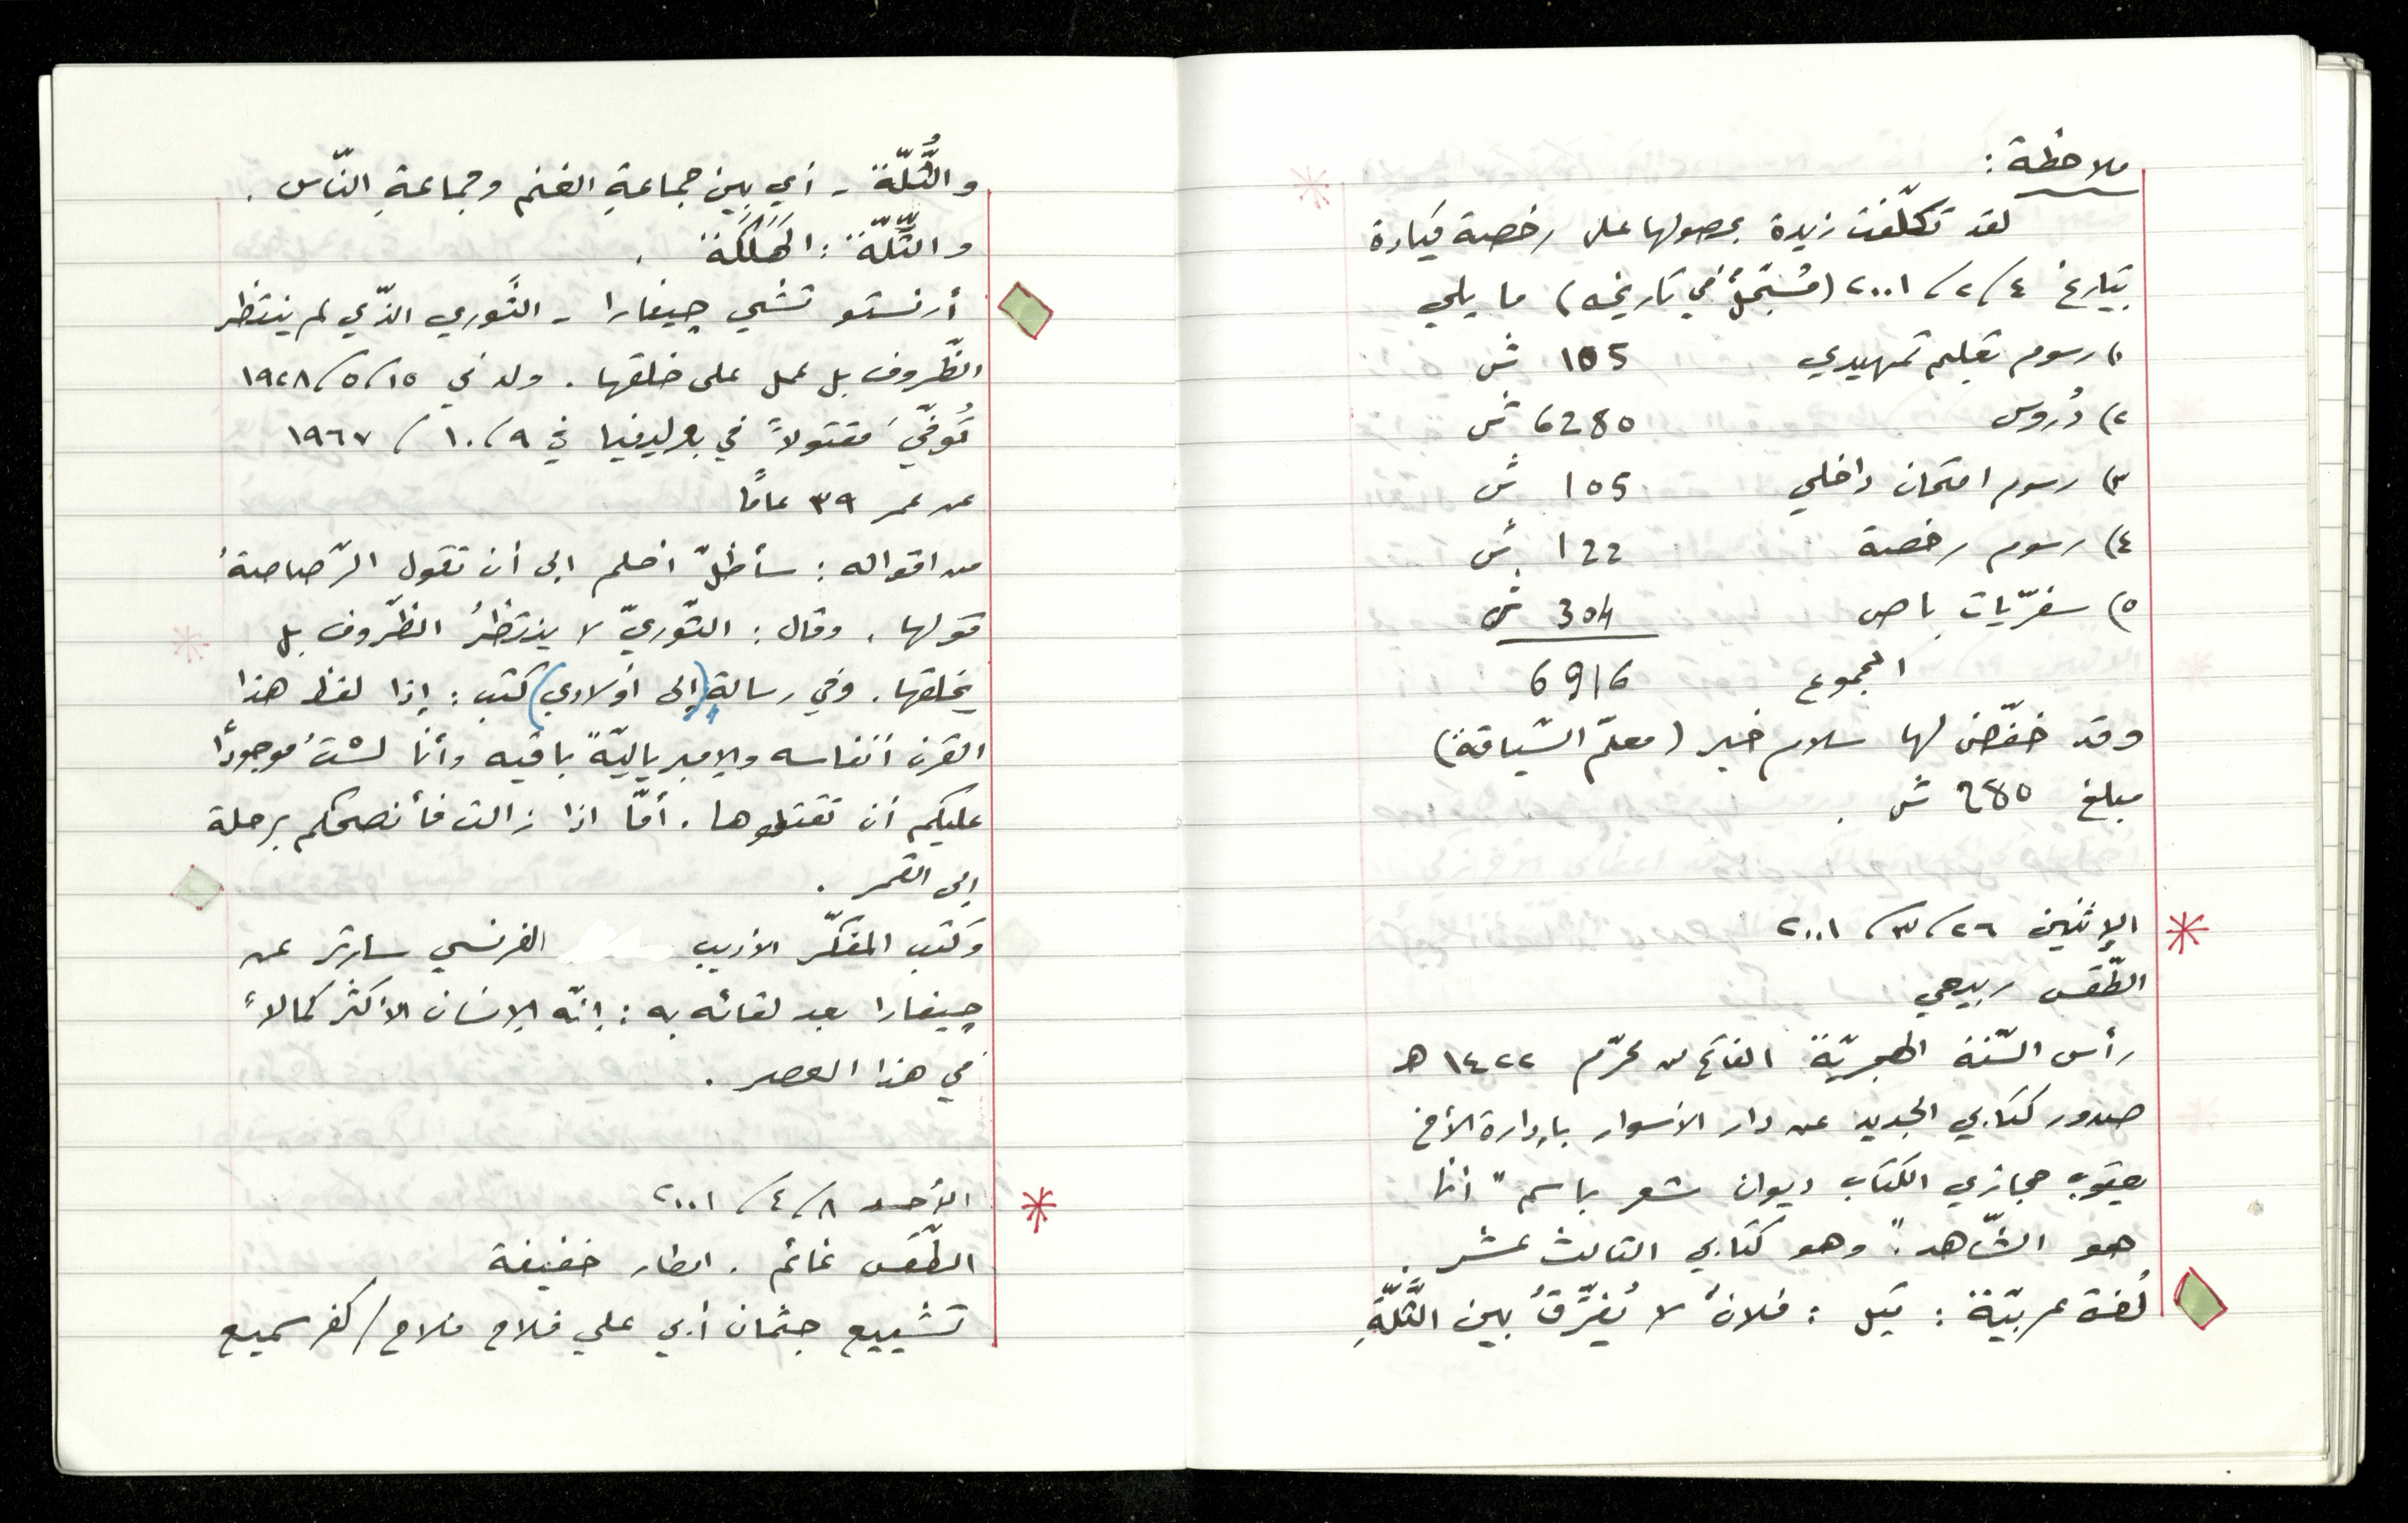 ملاحظة :
لقد تكلّفت زيدة بحصولها على رخصة قيادة
بتارخ ٤/٢/٢٠٠١ (مُسَجّلٌ في تاريخه) ما يلي
١) رسوم تعليم تمهيدي 105 ش
٢) دُروس 6280 ش
٣) رسوم امتحان داخلي 105 ش
٤) رسوم رخصة 122 ش
٥) سفرّيات باص 304 ش
المجموع 6916
وقد خفّض لها سلام خير (معلّم السّياقة)
مبلغ 280 ش .
الإثنين ٢٦/٣/٢٠٠١
الطّقس ربيعي
رأس السّنة الهجريّة الفاتح من محرّم ١٤٢٢ هـ
صدور كتابي الجديد عن دار الأسوار بإدارة الأخ
يعقوب حجازي الكتاب ديوان شعر باسم " أنا
هو الشّاهد". وهو كتابي الثالث عشر .
لُغة عربيّة : قيل : فلانٌ لا يُفَرِّقُ بين الثَّلّةِ
والثُّلّة - أي بين جماعةِ الغنم وجماعةِ النّاس .
والثِّلّة : الهَلَكَة .
أرنستو تشي چيفارا - الثَّوري الذّي لم ينتظر
الظّروف بل عمل على خلقها . ولد في ١٥/٥/١٩٢٨
تُوفّيَ مقتولاً في بوليفيا في ٩/١٠/١٩٦٧
عن عمر ٣٩ عامًا
من اقواله : سأظلّ احلم الى أن تقول الرّصاصةُ
قولها . وقال : الثّوريّ لا ينتظرُ الظّروف بل
يخلقها . وفي رسالة (إلى أولادي) كتب : إذا لفظ هذا
القرن أنفاسه والإمبرياليّةً باقيه وأنا لسْتُ موجودًا
عليكم أن تقتلوها . أمّا اذا زالت فأنصحكم برحلة
الى القمر .
وكتب المفكّر الأديب الفرنسي سارتر عن
چيفارا بعد لقائه به : إنّه الإنسان الأكثر كمالاً
في هذا العصر .
الأحد ٨/٤/٢٠٠١
الطّقس غائم . امطار خفيفة
تشييع جثمان أبي علي فلاح فلاح / كفر سميع